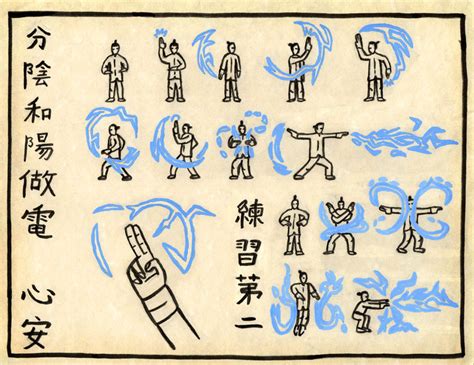 練習第二
分陰和陽做電 心安